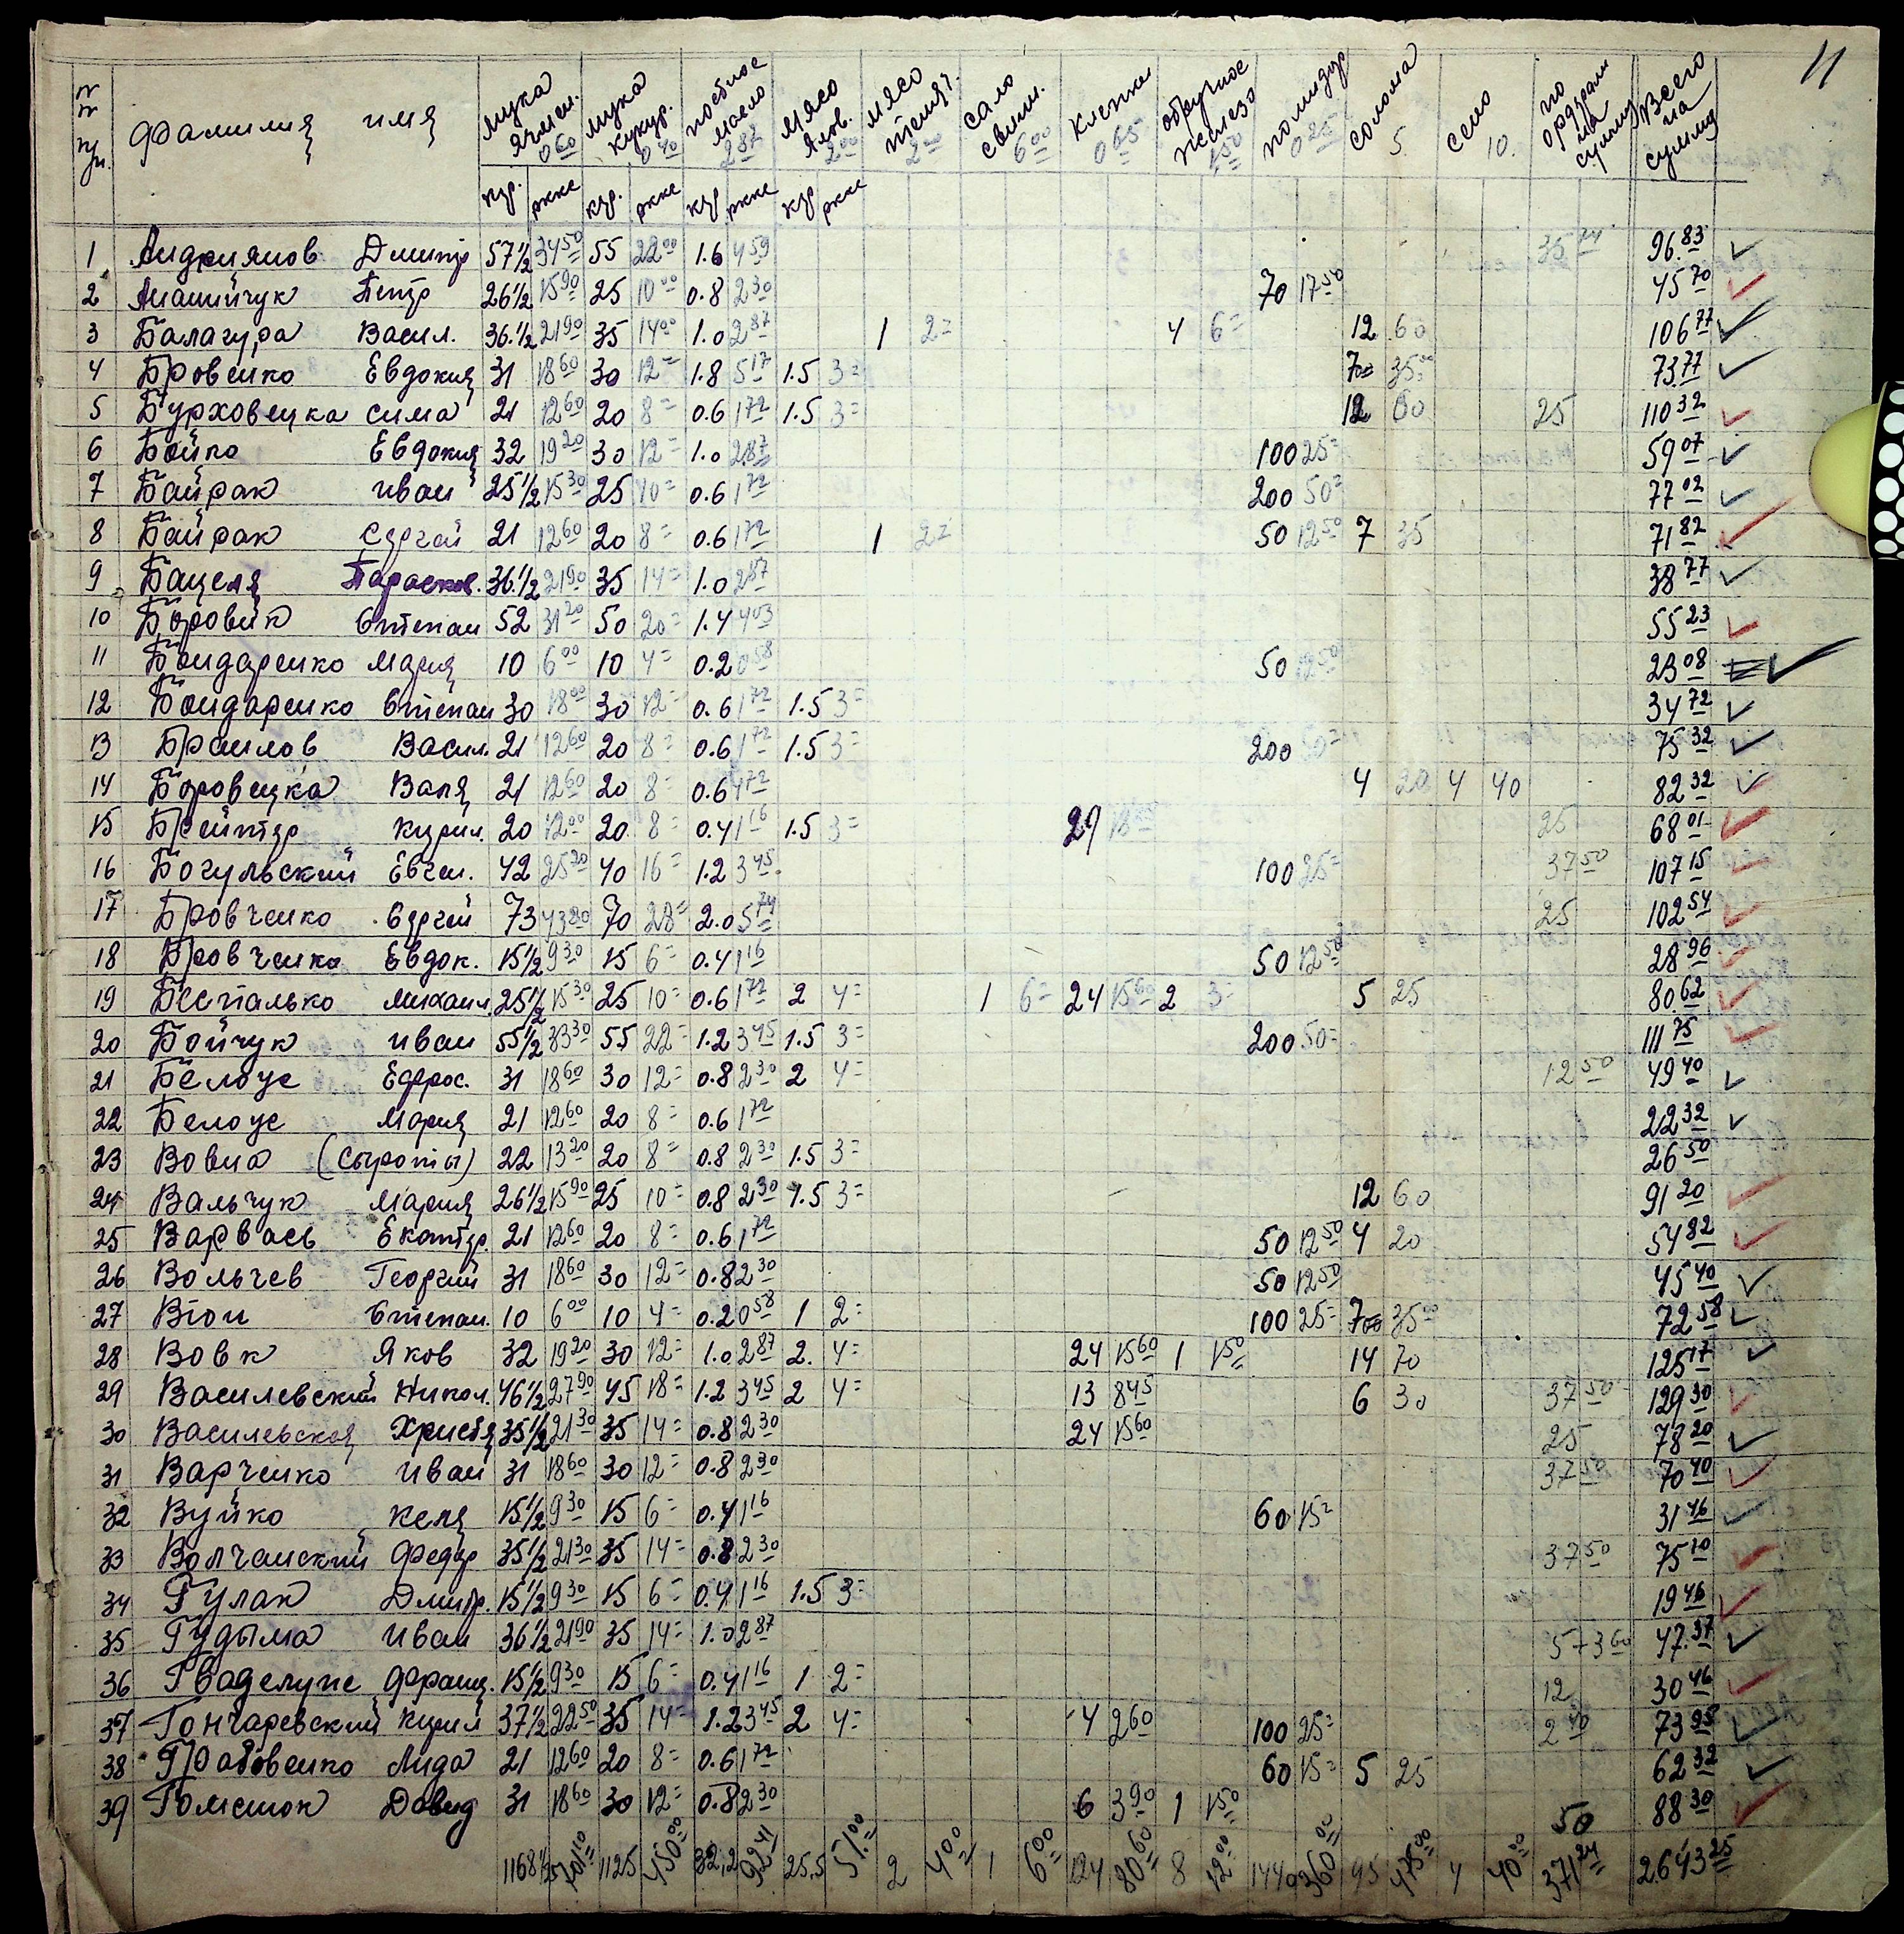 11
№№ п/п. Фамилия имя мука ячмен. 0 60 мука кукур. 0 40 постное масло 2 87 мясо ялов. 2 00 мясо телят. 2 00 сало свин. 6 00 клепки 0 65 обручное железо 1 50 помидор 0 25 солома 5. сено 10. по ордерам на сумму Всего на сумму
кгр. ркке кгр. ркке кгр ркке кгр ркке
1 Андриянов Дмитр 57 1/2 34 50 55 22 00 1.6 4 59 35 74 96.83
2 Ананийчук Петр 26 1/2 15 90 25 10 00 0.8 2 30 70 17 50 45 70
3 Балагура Васил. 36.1/2 21 90 35 14 00 1.0 2 87 1 2= 4 6= 12 60 106 77
4 Бровенко Евдокия 31 18 60 30 12= 1.8 5 17 1.5 3= 7 35= 73.77
5 Бурховецка сима 21 12 60 20 8= 0.6 1 72 1.5 3= 12 60 25 110 32
6 Бойко Евдокия 32 19 20 30 12= 1.0 2.87 100 25= 59 07
7 Байрак иван 25 1/2 15 30 25 10= 0.6 1 72 200 50= 77 02
8 Байрак Сергей 21 12 60 20 8= 0.6 1 72 1 2= 50 12 50 7 35 71 82
9 Бацеля Парасков. 36.1/2 21 90 35 14= 1.0 2 87 38 77
10 Боровик Степан 52 31 20 50 20= 1.4 4 03 55 23
11 Бондаренко Мария 10 6 00 10 4= 0.2 0 58 50 12 50 23 08
12 Бондаренко Степан 30 18 00 30 12= 0.6 1 72 1.5 3= 34 72
13 Браилов Васил. 21 12 60 20 8= 0.6 1 72 1.5 3= 200 50= 75 32
14 Боровецка Валя 21 12 60 20 8= 0.6 1 72 4 20 4 40 82 32
15 Брейтер Кирил. 20 12 00 20 8= 0.4 1 16 1.5 3= 29 18 85 25 68 01
16 Богульский Евген. 42 25 20 40 16= 1.2 3 45 100 25= 37 50 107 15
17 Бровченко Сергей 73 43 80 70 28= 2.0 5 74 25 102 54
18 Бровченко Евдок. 15 1/2 9 30 15 6= 0.4 1 16 50 12 50 28 96
19 Беспалько михаил 25 1/2 15 30 25 10= 0.6 1 72 2 4= 1 6= 24 15 60 2 3= 5 25 80.62
20 Бойчук иван 55 1/2 33 30 55 22= 1.2 3 45 1.5 3= 200 50= 111 75
21 Белоус Ефрос. 31 18 60 30 12= 0.8 2 30 2 4= 12 50 49 40
22 Белоус Мария 21 12 60 20 8= 0.6 1 72 22 32
23 Вовна (Сыроты) 22 13 20 20 8= 0.8 2 30 1.5 3= 26 50
24 Вальчук Мария 26 1/2 15 90 25 10= 0.8 2 30 1.5 3= 12 60 91 20
25 Варвась Екатер. 21 12 60 20 8= 0.6 1 72 50 12 50 4 20 54 82
26 Вольчев Георгий 31 18 60 30 12= 0.8 2 30 50 12 50 45 40
27 Вiон Степан. 10 6 00 10 4= 0.2 0 58 1 2= 100 25= 7 35 00 72 58
28 Вовк Яков 32 19 20 30 12= 1.0 2 87 2. 4= 24 15 60 1 1 50 14 70 125 17
29 Василевский Никол. 46 1/2 27 90 45 18= 1.2 3 45 2 4= 13 8 45 6 30 37 50 129 30
30 Василевская Христя 35 1/2 21 30 35 14= 0.8 2 30 24 15 60 25 78 20
31 Варченко иван 31 18 60 30 12= 0.8 2 30 37 50 70 40
32 Вуйко Келя 15 1/2 9 30 15 6= 0.4 1 16 60 15= 31 46
33 Волчанский Федор 35 1/2 21 30 35 14= 0.8 2 30 37 50 75 10
34 Гулак Дмитр. 15 1/2 9 30 15 6= 0.4 1 16 1.5 3= 19 46
35 Гудыма Иван 36 1/2 21 90 35 14= 1.0 2 87 57 3 60 47.37
36 Гваделупе Франц. 15 1/2 9 30 15 6= 0.4 1 16 1 2= 12 30 46
37 Гончаревский Кирил 37 1/2 22 50 35 14= 1.2 3 45 2 4= 4 2 60 100 25= 2 40 73 95
38 Грабовенко Лида 21 12 60 20 8= 0.6 1 72 60 15= 5 25 62 32
39 Гоменюк Довид 31 18 60 30 12= 0.8 2 30 6 3 90 1 1 50 50 88 30
1168 1/2 701 10 1125 450 00 32,2 92 41 25,5 51 00 2 4 00 1 6 00 124 80 60 8 12 00 1440 360 00 95 475 00 4 40 00 371 24 2.643 25